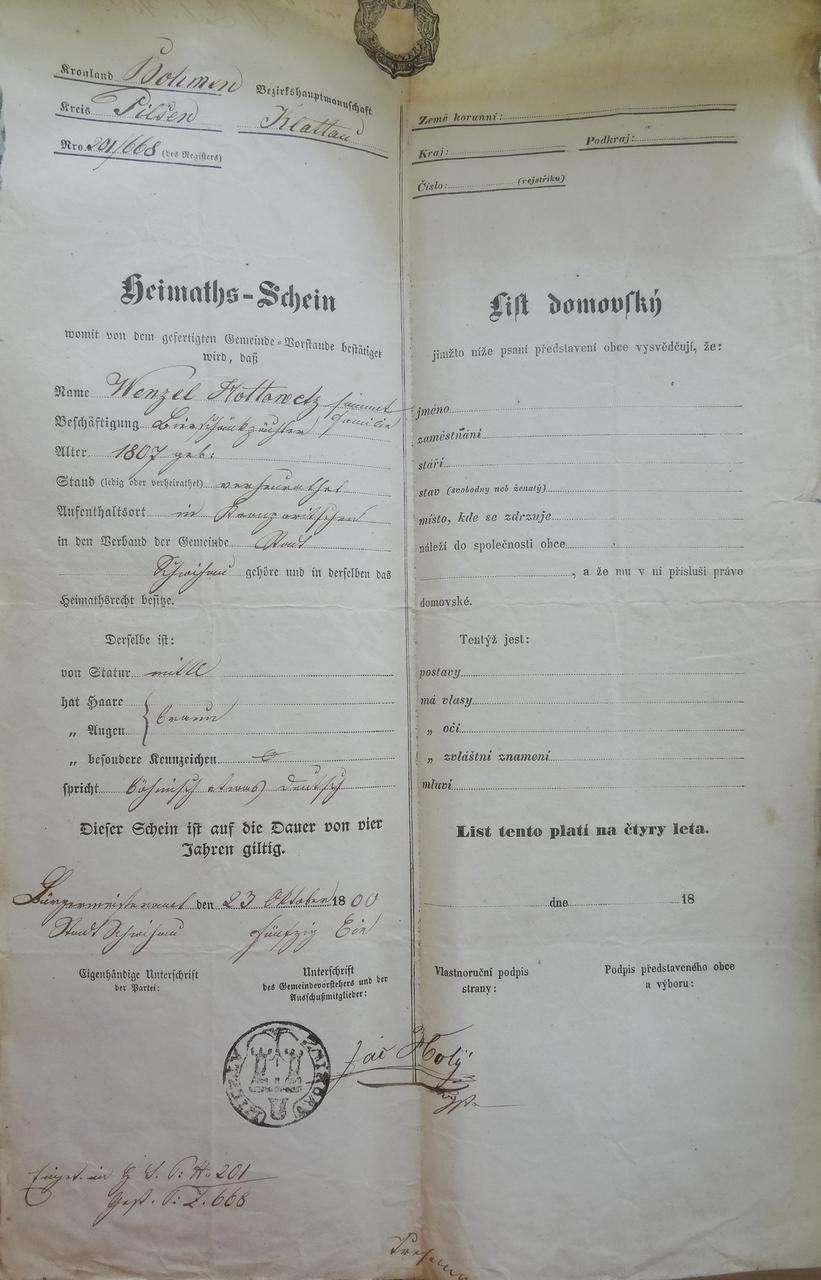 Kronland Böhmen
Bezirkshauptmannschaft
Kreis Pilsen
Klattau
Nro. 201/668 (des Registers)
Heimaths-Schein
womit von dem gefertigten Gemeinde-Vorstande bestätiget
wird, daß
Name Wenzel Hottowetz sammt
Familie
Beschäftigung Bierschänkpächter
Alter 1807 geb:
Stand (ledig oder verheirathet) verheurathet
Aufenthaltsort in
in den Verband der Gemeinde Stadt
Schwihau gehöre und in derselben das
Heimathsrecht besitze.
Derselbe ist:
von Statur mittl
hat Haare
braun
„ Augen
„ besondere Kennzeichen 0
spricht böhmisch etwas deutsch
Dieser Schein ist auf die Dauer von vier
Jahren giltig.
Bürgermeisteramt den 23 Oktober 1800
Stadt Schwihau fünfzig Ein
Eigenhändige Unterschrift
der Partei:
Unterschrift
des Gemeindevorstehers und der
Ausschußmitglieder:
Země korunní:
Kraj: Podkraj:
Číslo: (rejstříku)
List domovský
jimžto níže psaní představení obce vysvědčují, že:
jméno
zaměstnání
stáří
stav (svobodny neb ženatý)
místo, kde se zdrzuje
náleží do společnosti obce
, a že mu v ní přísluší právo
domovské.
Tentýž jest:
postavy
má vlasy
„ oči
„ zvláštní znamení
mluví
List tento platí na čtyry leta.
dne 18
Vlastnoruční podpis
strany:
Podpis představeného obce
a výboru:
Holý
G S. P: H. 201
Gest. P: Z. 668